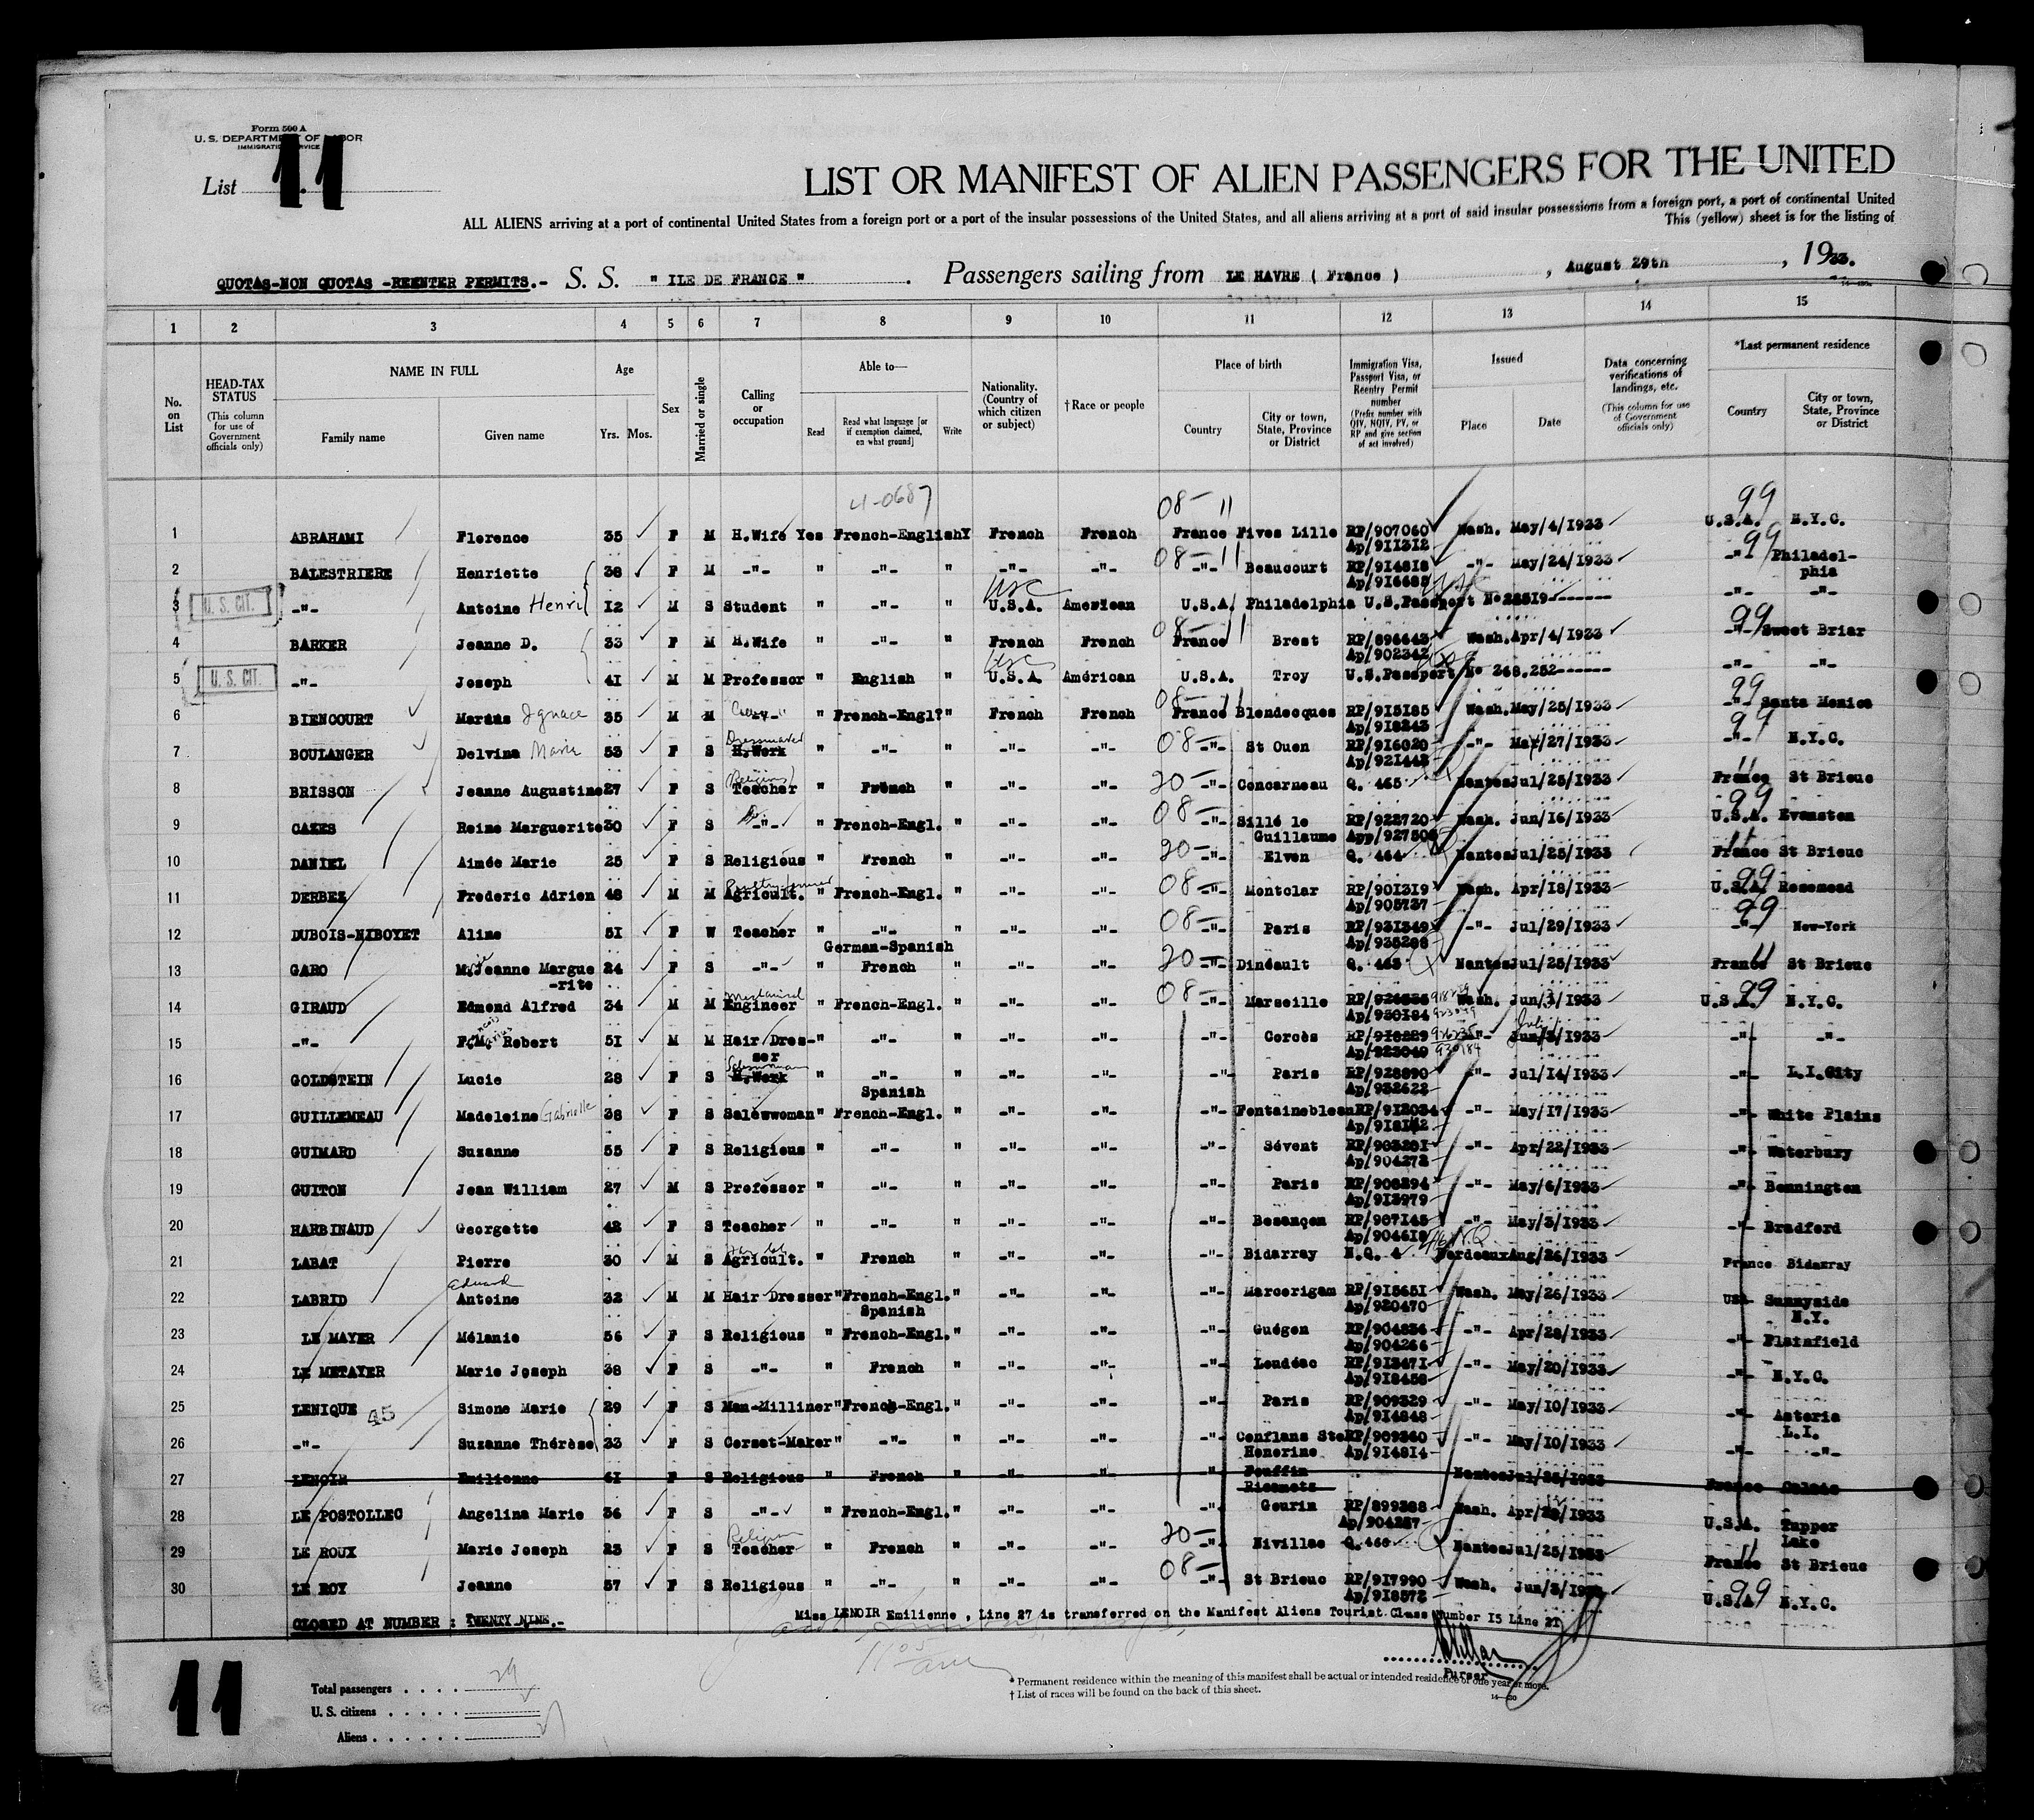 Form 500 A
U. S. DEPARTMENT OF LABOR
IMMIGRATION SERVICE
List 11
LIST OR MANIFEST OF ALIEN PASSENGERS FOR THE UNITED
ALL ALIENS arriving at a port of continental United States from a foreign port or a port of the insular possessions of the United States, and all aliens arriving at a port of said insular possessions from a foreign port, a port of continental United
This (yellow) sheet is for the listing of
QUOTAS-NON QUOTAS -REENTER PERMITS.- S. S. " ILE DE FRANCE " . Passengers sailing from LE HAVRE ( France ) , August 29th , 1933.
1 2 3 4 5 6 7 8 9 10 11 12 13 14 15
No. on List
HEAD-TAX STATUS (This column for use of Government officials only)
NAME IN FULL Family name Given name
Age Yrs. Mos.
Sex
Married or single
Calling or occupation
Able to— Read Read what language [or if exemption claimed, on what ground] Write
Nationality. (Country of which citizen or subject)
†Race or people
Place of birth Country City or town, State, Province or District
Immigration Visa, Passport Visa, or Reentry Permit number (Prefix number with QIV, NQIV, PV, or RP and give section of act involved)
Issued Place Date
Data concerning verifications of landings, etc. (This column for use of Government officials only)
*Last permanent residence Country City or town, State, Province or District
4-0687 08- 11 99
1 ABRAHAMI Florence 35 F M H.Wife Yes French-English Y French French France Fives Lille RP/907060 Wash. May/4/1933 U.S.A. N.Y.C.
Ap/911312
2 BALESTRIERE Henriette 38 F M -"- " -"- " -"- -"- 08- -"- 11 Beaucourt RP/914818 -"- May/24/1933 -"- 99 Philadelphia
Ap/916685
3 U. S. CIT. -"- Antoine Henri 12 M S Student " -"- " usc U.S.A. American U.S.A. Philadelphia U.S.Passport No 22519------- -"- -"-
4 BARKER Jeanne D. 33 F M H.Wife " -"- " French French 08- France 11 Brest RP/896643 Wash. Apr/4/1933 99 -"- Sweet Briar
Ap/902342
5 U. S. CIT. -"- Joseph 41 M M Professor " English " usc U.S.A. Américan U.S.A. Troy U.S.Passport No 248.252------ -"- -"-
6 BIENCOURT Marius Ignace 35 M M -"- " French-Engl? " French French 08- France 11 Blendecques RP/915185 Wash. May/25/1933 99 -"- Santa Monica
Ap/918243
7 BOULANGER Delvina Marie 53 F S Dressmaker H.Work " -"- " -"- -"- 08- -"- St Ouen RP/916020 -"- May/27/1933 99 -"- N.Y.C.
Ap/921443
8 BRISSON Jeanne Augustine 27 F S Religious Teacher " French " -"- -"- 20- -"- Concarneau Q. 465 Nantes Jul/25/1933 11 France St Brieuc
9 CAZES Reine Marguerite 30 F S -"- " French-Engl. " -"- -"- 08- -"- Sillé le Guillaume RP/922720 Wash. Jun/16/1933 99 U.S.A. Evanston
App/927505
10 DANIEL Aimée Marie 25 F S Religious " French " -"- -"- 20- -"- Elven Q. 464 Nantes Jul/25/1933 11 France St Brieuc
11 DERBEZ Frederic Adrien 48 M M Poultry farmer Agricult. " French-Engl. " -"- -"- 08- -"- Montclar RP/901319 Wash. Apr/18/1933 99 U.S.A. Rosemead
Ap/905737
12 DUBOIS-NIBOYET Aline 51 F W Teacher " -"- German-Spanish " -"- -"- 08- -"- Paris RP/931349 -"- Jul/29/1933 99 -"- New-York
Ap/935288
13 GARO Mie Jeanne Margue-rite 24 F S -"- " French " -"- -"- 20- -"- Dinéault Q. 463 Nantes Jul/25/1933 11 France St Brieuc
14 GIRAUD Edmond Alfred 34 M M Engineer " French-Engl. " -"- -"- 08- -"- Marseille RP/926235 918229 Wash. Jun/3/1933 99 U.S.A. N.Y.C.
Ap/930184 923049
15 -"- F.M. Robert 51 M M Hair Dres-ser " -"- " -"- -"- -"- Corcès RP/918229 926235 -"- Jun/3/1933 July -"- -"-
Ap/923049 930184
16 GOLDSTEIN Lucie 28 F S Saleswoman H.Work " -"- Spanish " -"- -"- -"- Paris RP/928890 -"- Jul/14/1933 -"- L.I.City
Ap/932622
17 GUILLEMEAU Madeleine Gabrielle 38 F S Saleswoman " French-Engl. " -"- -"- -"- Fontainebleau RP/912034 -"- May/17/1933 -"- White Plains
Ap/918142
18 GUIMARD Suzanne 55 F S Religious " -"- " -"- -"- -"- Sévent RP/903201 -"- Apr/22/1933 -"- Waterbury
Ap/904272
19 GUITON Jean William 27 M S Professor " -"- " -"- -"- -"- Paris RP/908294 -"- May/6/1933 -"- Bennington
Ap/913979
20 HARBINAUD Georgette 42 F S Teacher " -"- " -"- -"- -"- Besançon RP/907145 -"- May/3/1933 -"- Bradford
Ap/904618
21 LABAT Pierre 30 M S Agricult. " French " -"- -"- -"- Bidarray N.Q. 4 Bordeaux Aug/26/1933 France Bidarray
22 LABRID Eduard Antoine 32 M M Hair Dresser " French-Engl. Spanish " -"- -"- -"- Marcorigam RP/915651 Wash. May/26/1933 USA Sunnyside N.Y.
Ap/920470
23 LE MAYER Mélanie 56 F S Religious " French-Engl. " -"- -"- -"- Guégon RP/904836 -"- Apr/28/1933 -"- Plainfield
Ap/904266
24 LE METAYER Marie Joseph 38 F S -"- " French " -"- -"- -"- Loudéac RP/913471 -"- May/20/1933 -"- N.Y.C.
Ap/918458
25 LENIQUE 45 Simone Marie 29 F S Man-Milliner " French-Engl. " -"- -"- -"- Paris RP/909329 -"- May/10/1933 -"- Astoria L.I.
Ap/914848
26 -"- Suzanne Thérèse 33 F S Corset-Maker " -"- " -"- -"- -"- Conflans Ste Honorine RP/909360 -"- May/10/1933 -"- -"-
Ap/914814
27 LENOIR Emilienne 41 F S Religious " French " -"- -"- -"- Nantes Jul/25/1933 France Calais
28 LE POSTOLLEC Angelina Marie 36 F S -"- " French-Engl. " -"- -"- -"- Gourin RP/899388 Wash. Apr/28/1933 U.S.A. Tupper Lake
Ap/904257
29 LE ROUX Marie Joseph 23 F S Religious Teacher " French " -"- -"- 20- -"- Nivillac Q. 466 Nantes Jul/25/1933 11 France St Brieuc
30 LE ROY Jeanne 57 F S Religious " -"- " -"- -"- 08- -"- St Brieuc RP/917990 Wash. Jun/3/1933 99 U.S.A. N.Y.C.
Ap/918572
CLOSED AT NUMBER : TWENTY NINE.-
Miss LENOIR Emilienne , Line 27 is transferred on the Manifest Aliens Tourist Class number 15 Line 21
Purser
11
Total passengers . . . . 29
U. S. citizens . . . . .
Aliens . . . . . .
* Permanent residence within the meaning of this manifest shall be actual or intended residence of one year or more.
† List of races will be found on the back of this sheet.